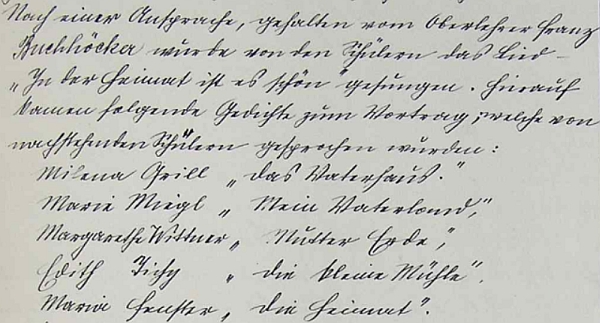 Nach einer Ansprache, gehalten vom Oberlehrer Franz
Buchhöcker wurde von den Schülern das Lied –
„In der Heimat ist es schön" gesungen. Hierauf
kamen folgende Gedichte zum Vortrag; welche von
nachstehenden Schülern gesprochen wurden:
Milena Grill „das Vaterhaus."
Marie Miegl „Mein Vaterland",
Margarethe Wittner „Mutter Erde",
Edith Tichy „die kleine Mühle".
Maria Fenster „die Heimat".